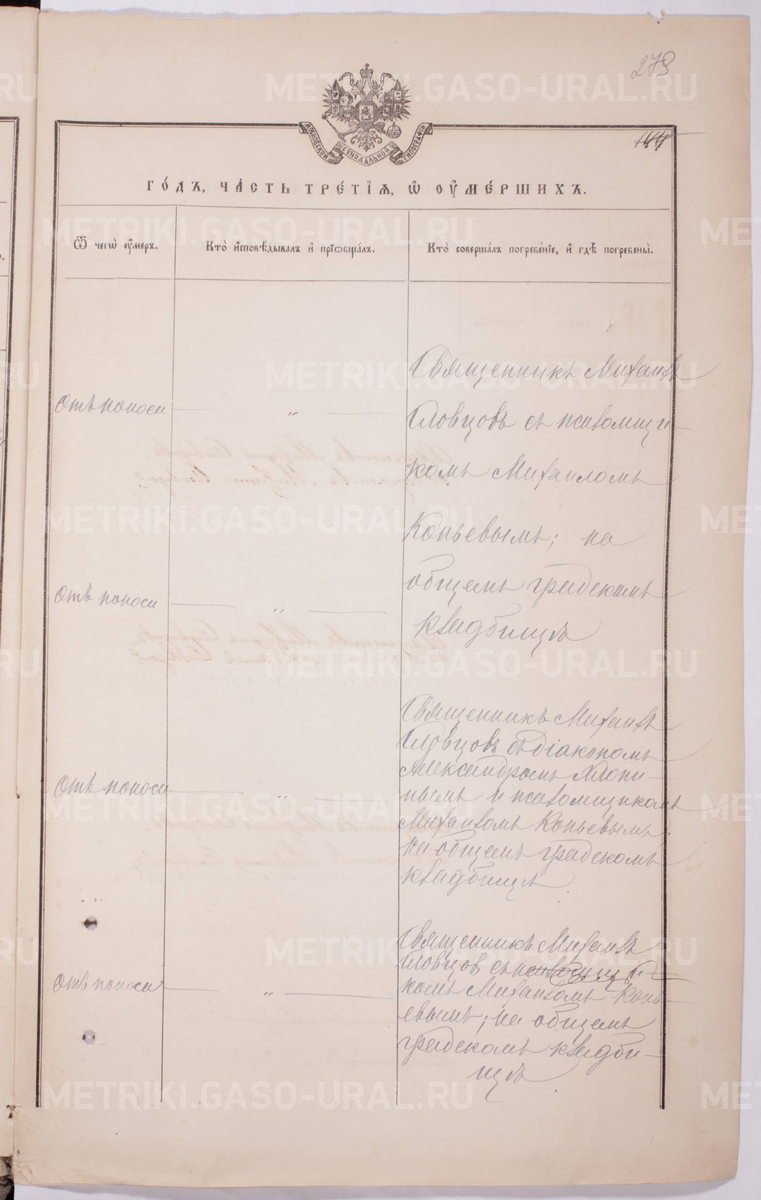 273
МОСКОВСКОЙ СѴНОДАЛЬНОЙ ТИПОГРАФІИ
144
ГО́ДЪ, ЧАСТЬ ТРЕТІѦ, Ѡ ОУМЕРШИХЪ.
Ѿ чегѡ̀ оу҆́меръ.
Кто̀ и҆сповѣ́дывалъ и҆ прїѡбща́лъ.
Кто̀ соверша́лъ погребе́нїе, и҆ гдѣ̀ погребены̀.
Отъ поноса
"
Священникъ Михаилъ
Словцовъ съ псаломщи-
комъ Михаиломъ
Копьевымъ; на
общемъ градскомъ
кладбищѣ
Отъ поноса
"
Отъ поноса
"
Священникъ Михаилъ
Словцовъ съ діакономъ
Александромъ
и псаломщикомъ
Михаиломъ Копьевымъ,
на общемъ градскомъ
кладбищѣ.
Отъ поноса
"
Священникъ Михаилъ
Словцов съ псаломщи-
комъ Михаиломъ Копь-
евымъ; на общемъ
градскомъ кладби-
щѣ
METRIKI.GASO-URAL.RU